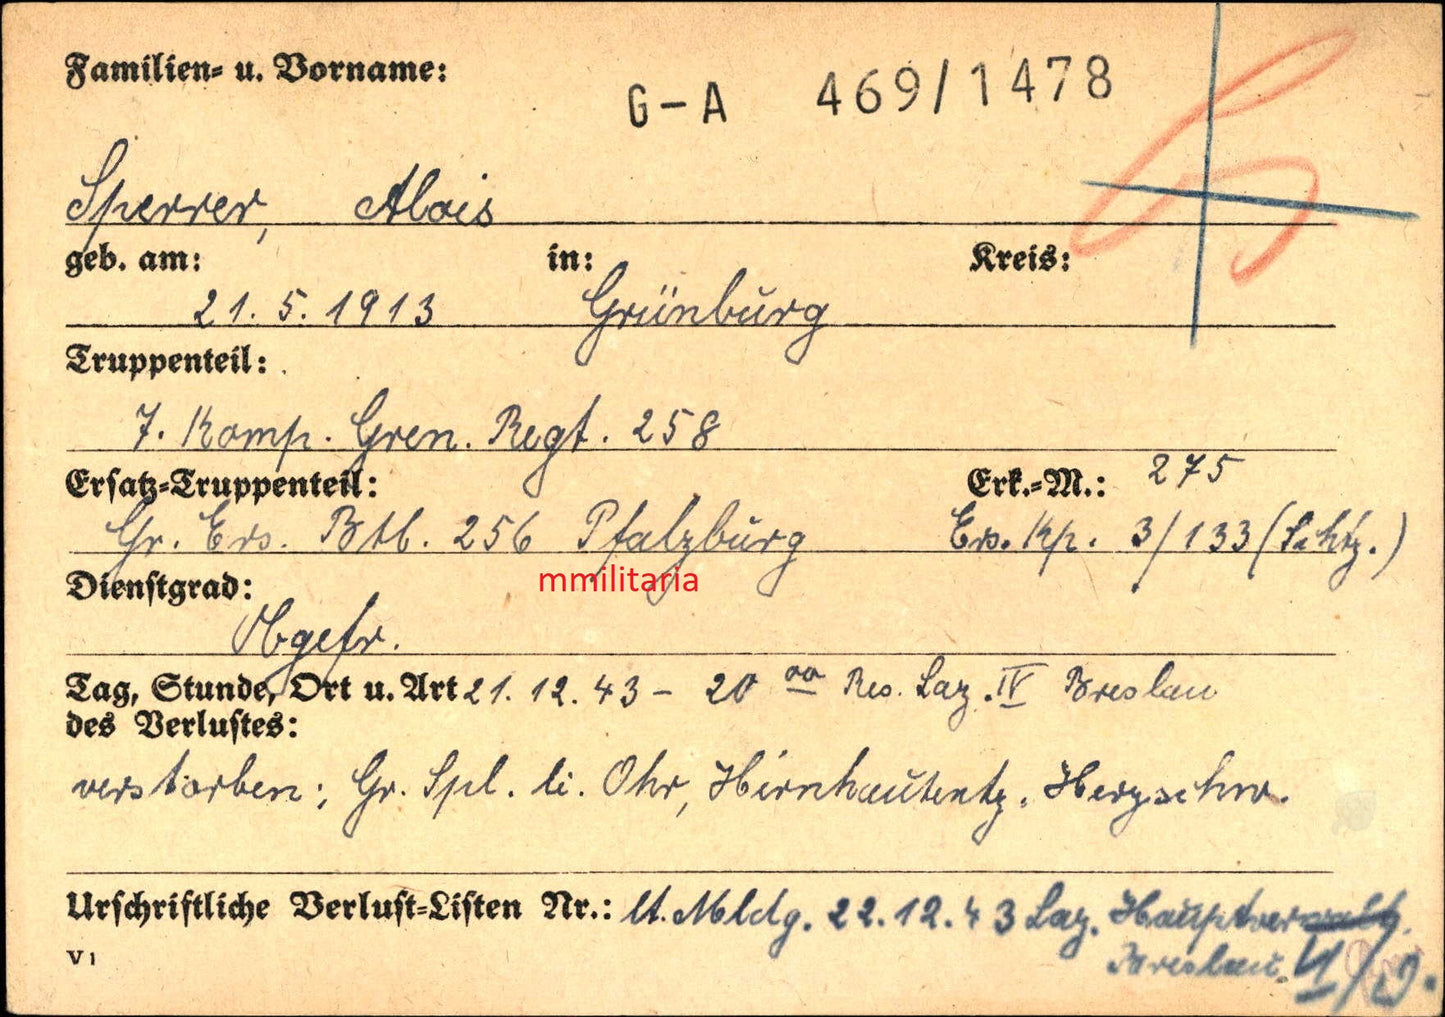 Familien- u. Vorname:
G-A 469/1478
Sperrer, Alois
geb. am: in: Kreis:
21. 5. 1913 Grünburg
Truppenteil:
7. Komp. Gren. Regt. 258
Ersatz-Truppenteil: Erk.-M.: 275
Gr. Ers. Btl. 256 Pfalzburg Ers. Kp. 3/133 (Schtz.)
mmilitaria
Dienstgrad:
Obgefr.
Tag, Stunde, Ort u. Art 21. 12. 43 - 20 oo Res. Laz. IV Breslau
des Verlustes:
verstorben; Gr. Spl. li. Ohr, Hirnhautentz. Herzschw.
Urschriftliche Verlust-Listen Nr.: lt. Mldg. 22. 12. 43 Laz.
Breslau
V 1